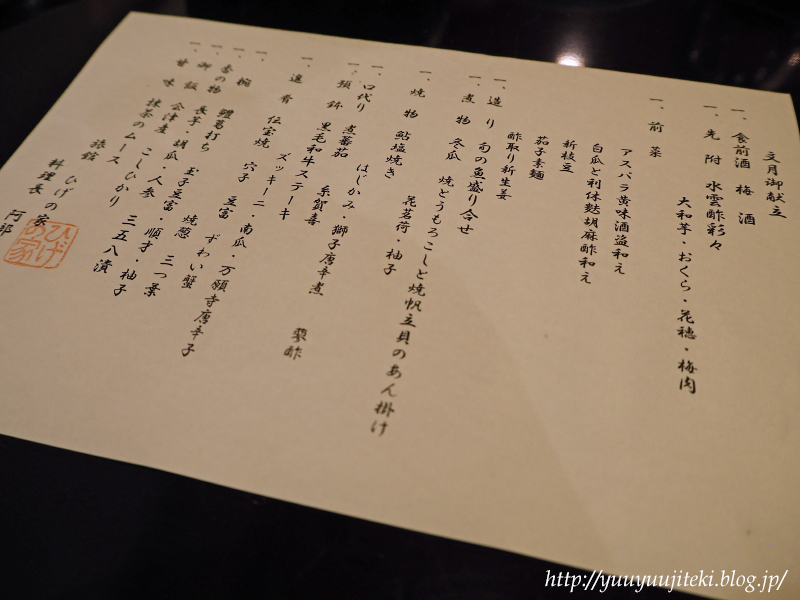 文月御献立
一、食前酒 梅酒
一、先附 水雲酢彩々
大和芋・おくら・花穂・梅肉
一、前菜
アスパラ黄味酒盗和え
白瓜と利休麩胡麻酢和え
新枝豆
茄子素麺
酢取り新生姜
一、造り 旬の魚盛り合せ
一、煮物 冬瓜 焼とうもろこしと焼帆立貝のあん掛け
一、焼物 鮎塩焼き 花茗荷・柚子
はじかみ・獅子唐辛煮 蓼酢
一、口代り 煮蕃茄 糸賀喜
一、預鉢 黒毛和牛ステーキ
ズッキーニ・南瓜・万願寺唐辛子
一、進肴 伝宝焼 穴子 豆富 ずわい蟹
一、椀 鱧葛打ち 玉子豆富・焼葱 三つ葉
一、香の物 長芋・胡瓜・人参・順才・柚子
一、御飯 会津産 こしひかり 三五八漬
一、甘味 抹茶のムース
旅館 ひげの家
料理長 阿部
ひげの家
http://yuuyuujiteki.blog.jp/